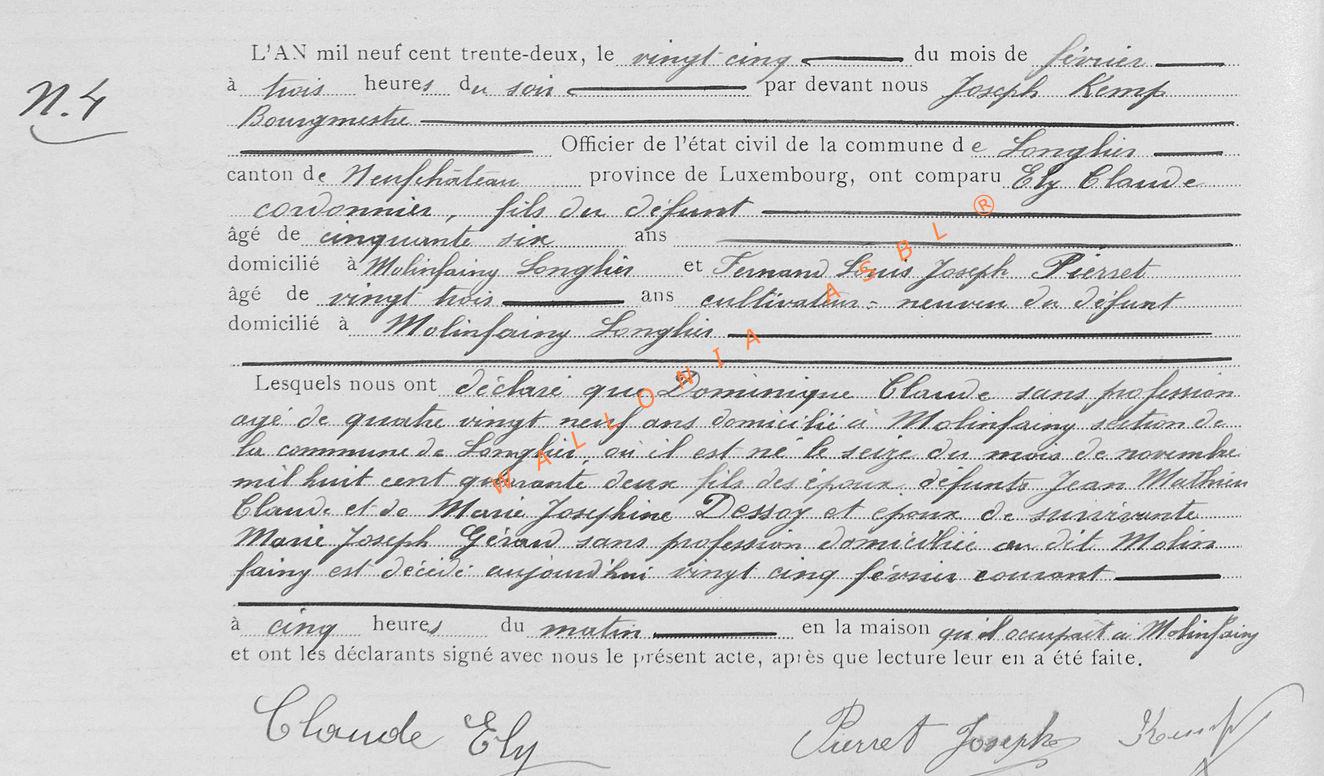 L'AN mil neuf cent trente-deux, le vingt cinq du mois de février
N. 4
à trois heures du soir par devant nous Joseph Kemp
Bourgmestre
Officier de l'état civil de la commune de Longlier
canton de Neufchâteau province de Luxembourg, ont comparu Ely Claude
cordonnier, fils du défunt
âgé de cinquante six ans
domicilié à Molinfaing Longlier et Fernand Louis Joseph Pierret
âgé de vingt trois ans cultivateur - neuveu du défunt
domicilié à Molinfaing Longlier
Lesquels nous ont déclaré que Dominique Claude sans profession
agé de quatre vingt neuf ans domicilié à Molinfaing section de
la commune de Longlier, où il est né le seize du mois de novembre
mil huit cent quarante deux fils des époux défunts Jean Mathieu
Claude et de Marie Josephine Dessoy et époux de survivante
Marie Joseph Gérard sans profession domiciliée au dit Molin
faing est décédé aujourd'hui vingt cinq février courant
à cinq heures du matin en la maison qu'il occupait à Molinfaing
et ont les déclarants signé avec nous le présent acte, après que lecture leur en a été faite.
Claude Ely Pierret Joseph Kemp
WALLONIA ASBL ®